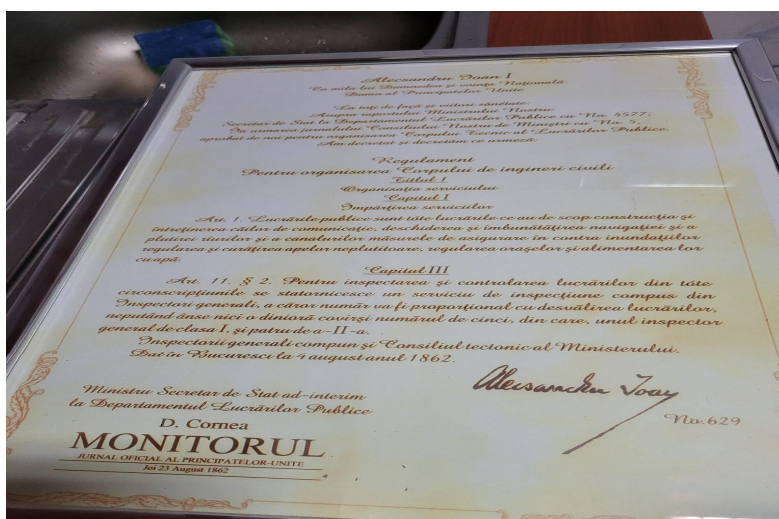 Alecsandru Ioan I
Cu mila lui Dumnedeu și voința Națională
Domn al Principatelor Unite
La toți de față și viitori sănetate:
Asupra raportului Ministrului Nostru
Secretar de Stat la Departamentul Lucrărilor Publice cu No. 4577;
În urmarea jurnalului Consiliului Nostru de Miniștri cu No. 5,
aprobat de noi pentru organisarea Corpului Tecnic al Lucrărilor Publice.
Am decretat și decretăm ce urmeză
Regulament
Pentru organisarea Corpului de ingineri civili
Titlul I
Organisația serviciului
Capitul I
Împărțirea serviciilor
Art. 1. Lucrările publice sunt tóte lucrările ce au de scop construcția și
întreținerea căilor de comunicație, deschiderea și îmbunătățirea navigației și a
plutirei rîurilor și a canalurilor măsurele de asigurare în contra inundațiilor
regularea și curățirea apelor neplutitoare, regularea orașelor și alimentarea lor
cu apă.
Capitul III
Art. 11. § 2. Pentru inspectarea și controlarea lucrărilor din tóte
circonscripțiunile se statornicesce un serviciu de inspecțiune compus din
Inspectori generali, a căror număr va fi proporțional cu desvălirea lucrărilor,
neputând ânse nici o dinioră covîrși numărul de cinci, din care, unul inspector
general de clasa I, și patru de a-II-a.
Inspectorii generali compun și Consiliul tectonic al Ministerului.
Dat în Bucuresci la 4 august anul 1862.
Alecsandru Ioan
No. 629
Ministru Secretar de Stat ad-interim
la Departamentul Lucrărilor Publice
D. Cornea
MONITORUL
JURNAL OFICIAL AL PRINCIPATELOR-UNITE
Joi 23 August 1862